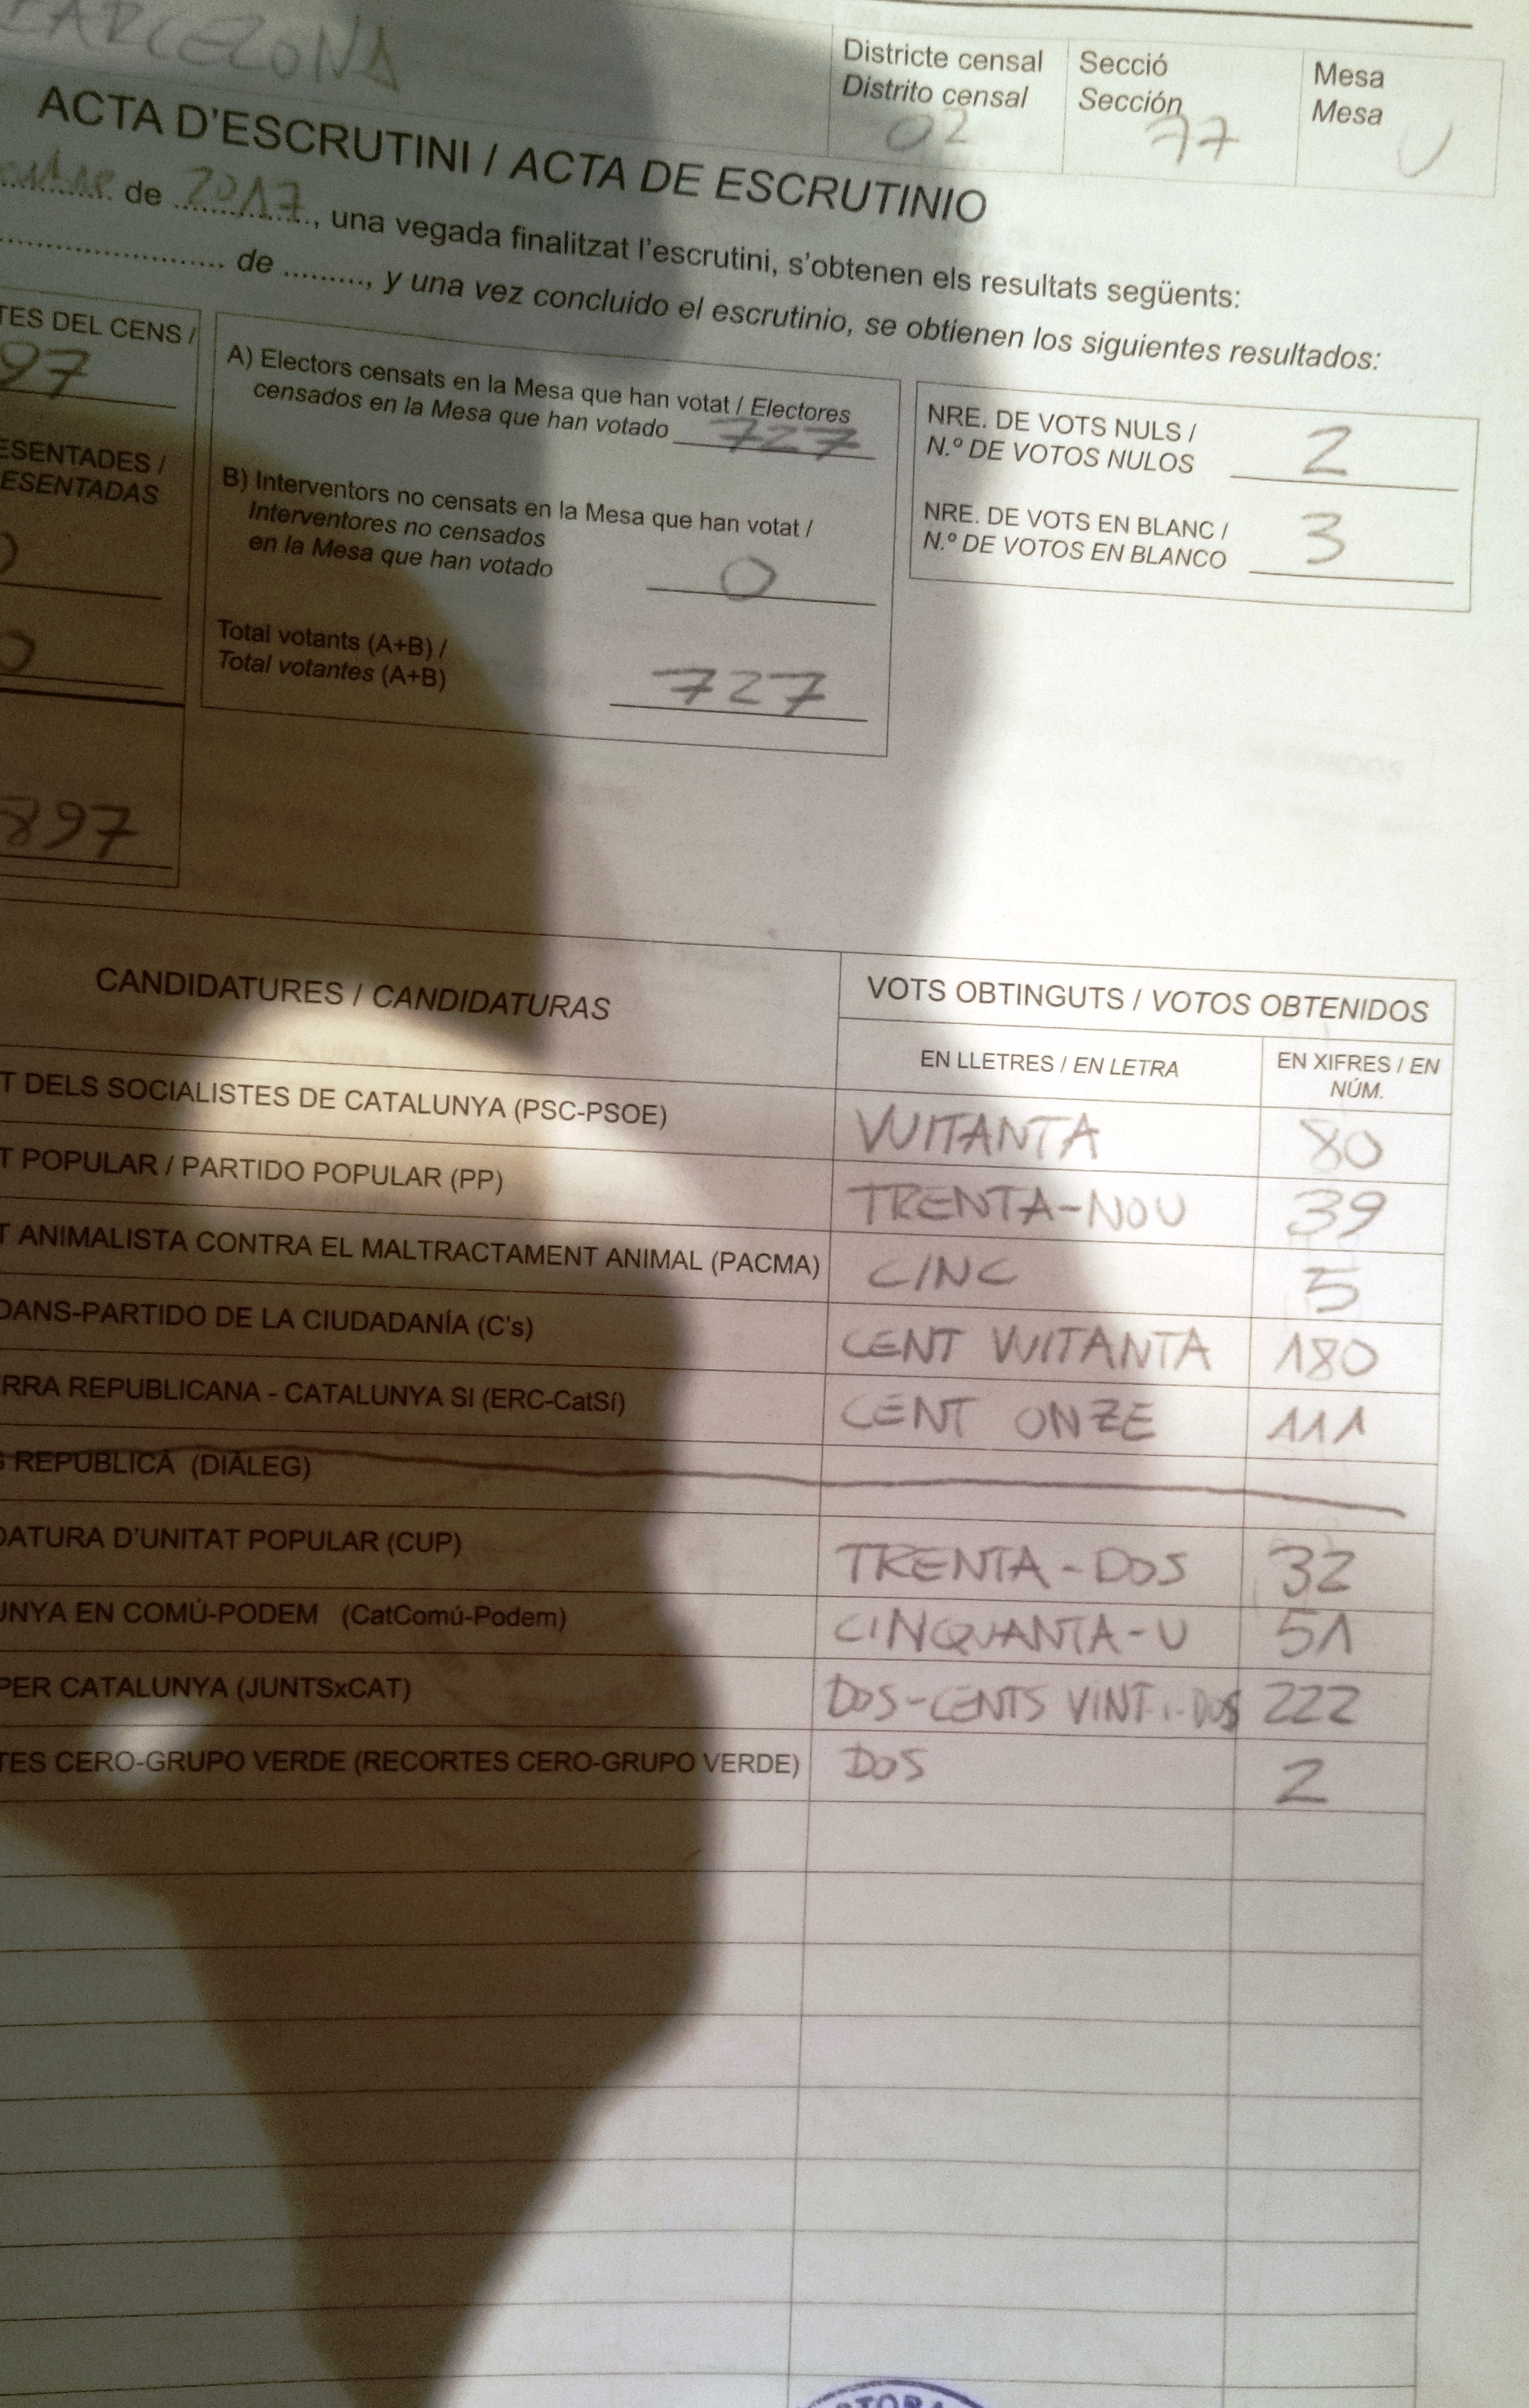 BARCELONA
Districte censal
Distrito censal
02
Secció
Sección
77
Mesa
Mesa
U
ACTA D'ESCRUTINI / ACTA DE ESCRUTINIO
de 2017, una vegada finalitzat l'escrutini, s'obtenen els resultats següents:
de ........, y una vez concluido el escrutinio, se obtienen los siguientes resultados:
TES DEL CENS /
97
ESENTADES /
ESENTADAS
0
0
897
A) Electors censats en la Mesa que han votat / Electores
censados en la Mesa que han votado 727
B) Interventors no censats en la Mesa que han votat /
Interventores no censados
en la Mesa que han votado 0
Total votants (A+B) /
Total votantes (A+B) 727
NRE. DE VOTS NULS /
N.º DE VOTOS NULOS 2
NRE. DE VOTS EN BLANC /
N.º DE VOTOS EN BLANCO 3
CANDIDATURES / CANDIDATURAS
VOTS OBTINGUTS / VOTOS OBTENIDOS
EN LLETRES / EN LETRA
EN XIFRES / EN
NÚM.
T DELS SOCIALISTES DE CATALUNYA (PSC-PSOE) VUITANTA 80
T POPULAR / PARTIDO POPULAR (PP) TRENTA-NOU 39
T ANIMALISTA CONTRA EL MALTRACTAMENT ANIMAL (PACMA) CINC 5
DANS-PARTIDO DE LA CIUDADANÍA (C's) CENT VUITANTA 180
RRA REPUBLICANA - CATALUNYA SI (ERC-CatSí) CENT ONZE 111
G REPUBLICÀ (DIÀLEG)
DATURA D'UNITAT POPULAR (CUP) TRENTA-DOS 32
UNYA EN COMÚ-PODEM (CatComú-Podem) CINQUANTA-U 51
PER CATALUNYA (JUNTSxCAT) DOS-CENTS VINT-I-DOS 222
TES CERO-GRUPO VERDE (RECORTES CERO-GRUPO VERDE) DOS 2